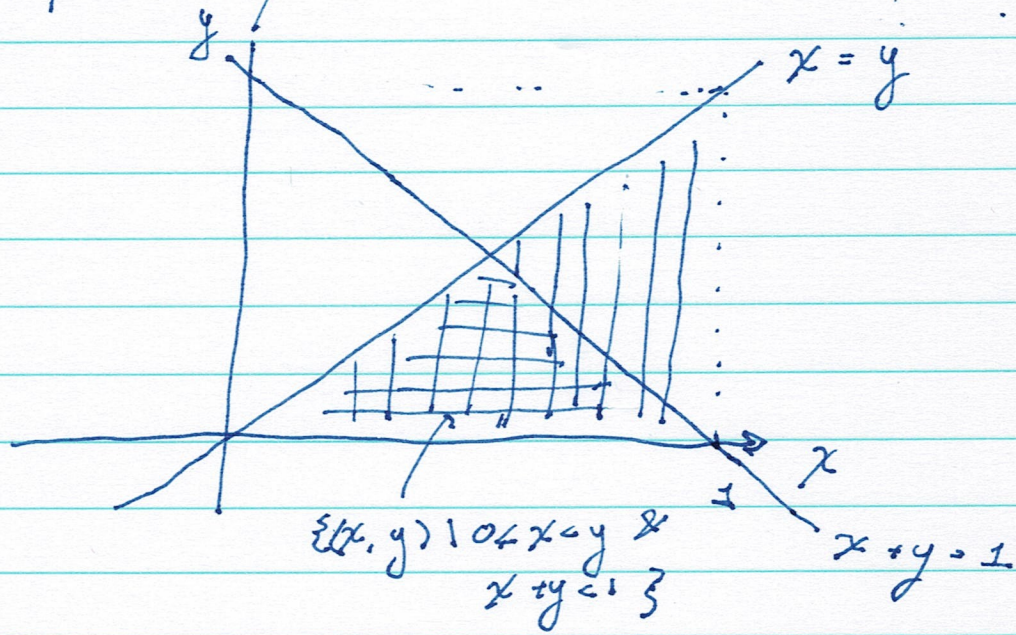 y
x = y
x
1
{(x, y) | 0 < x < y &
x + y = 1
x + y < 1 }